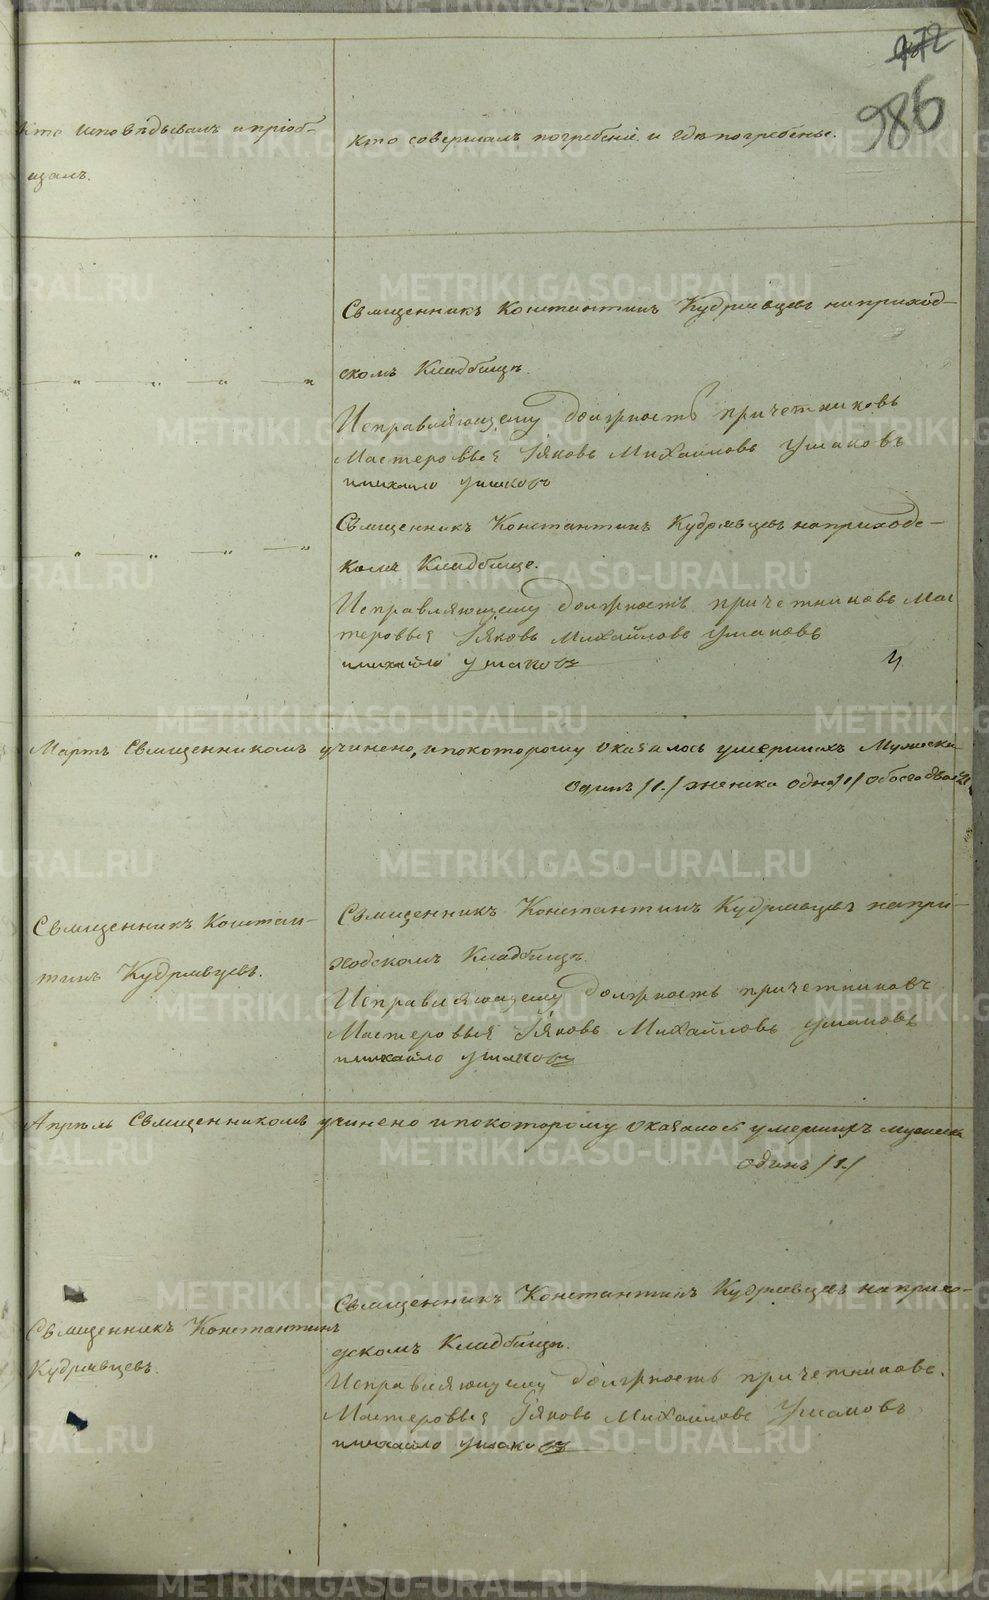 986
Кто исповѣдывалъ и пріоб-
щалъ.
Кто совершалъ погребеніе и гдѣ погребены.
Священникъ Константинъ Кудрявцевъ на приход-
скомъ Кладбищѣ.
Исправляющему должность причетниковъ
Мастеровыя Іяковъ Михайловъ Ушаковъ
и михайло ушаковъ
Священникъ Константинъ Кудрявцевъ на приходс-
комъ Кладбище.
Исправляющему должность причетниковъ Мас
теровыя Іяковъ Михайловъ Ушаковъ
и михайло ушаковъ
Мартъ Священникомъ учинено, и по которому оказалось умершихъ Мужеска
одинъ /1./ женска одна /1/ обоего два /2/
Священникъ Констан-
тинъ Кудрявцевъ.
Священникъ Константинъ Кудрявцевъ на при-
ходскомъ Кладбищѣ.
Исправляющему должность причетниковъ
Мастеровыя Іяковъ Михайловъ Ушаковъ
и михайло ушаковъ
Апрѣль Священникомъ учинено и по которому оказалось умершихъ мужеска
одинъ /1./
Священникъ Константинъ
Кудрявцевъ.
Священникъ Константинъ Кудрявцевъ на прихо-
дскомъ Кладбищѣ.
Исправляющему должность причетниковъ.
Мастеровыя Іяковъ Михайловъ Ушаковъ
и михайло ушаковъ
METRIKI.GASO-URAL.RU